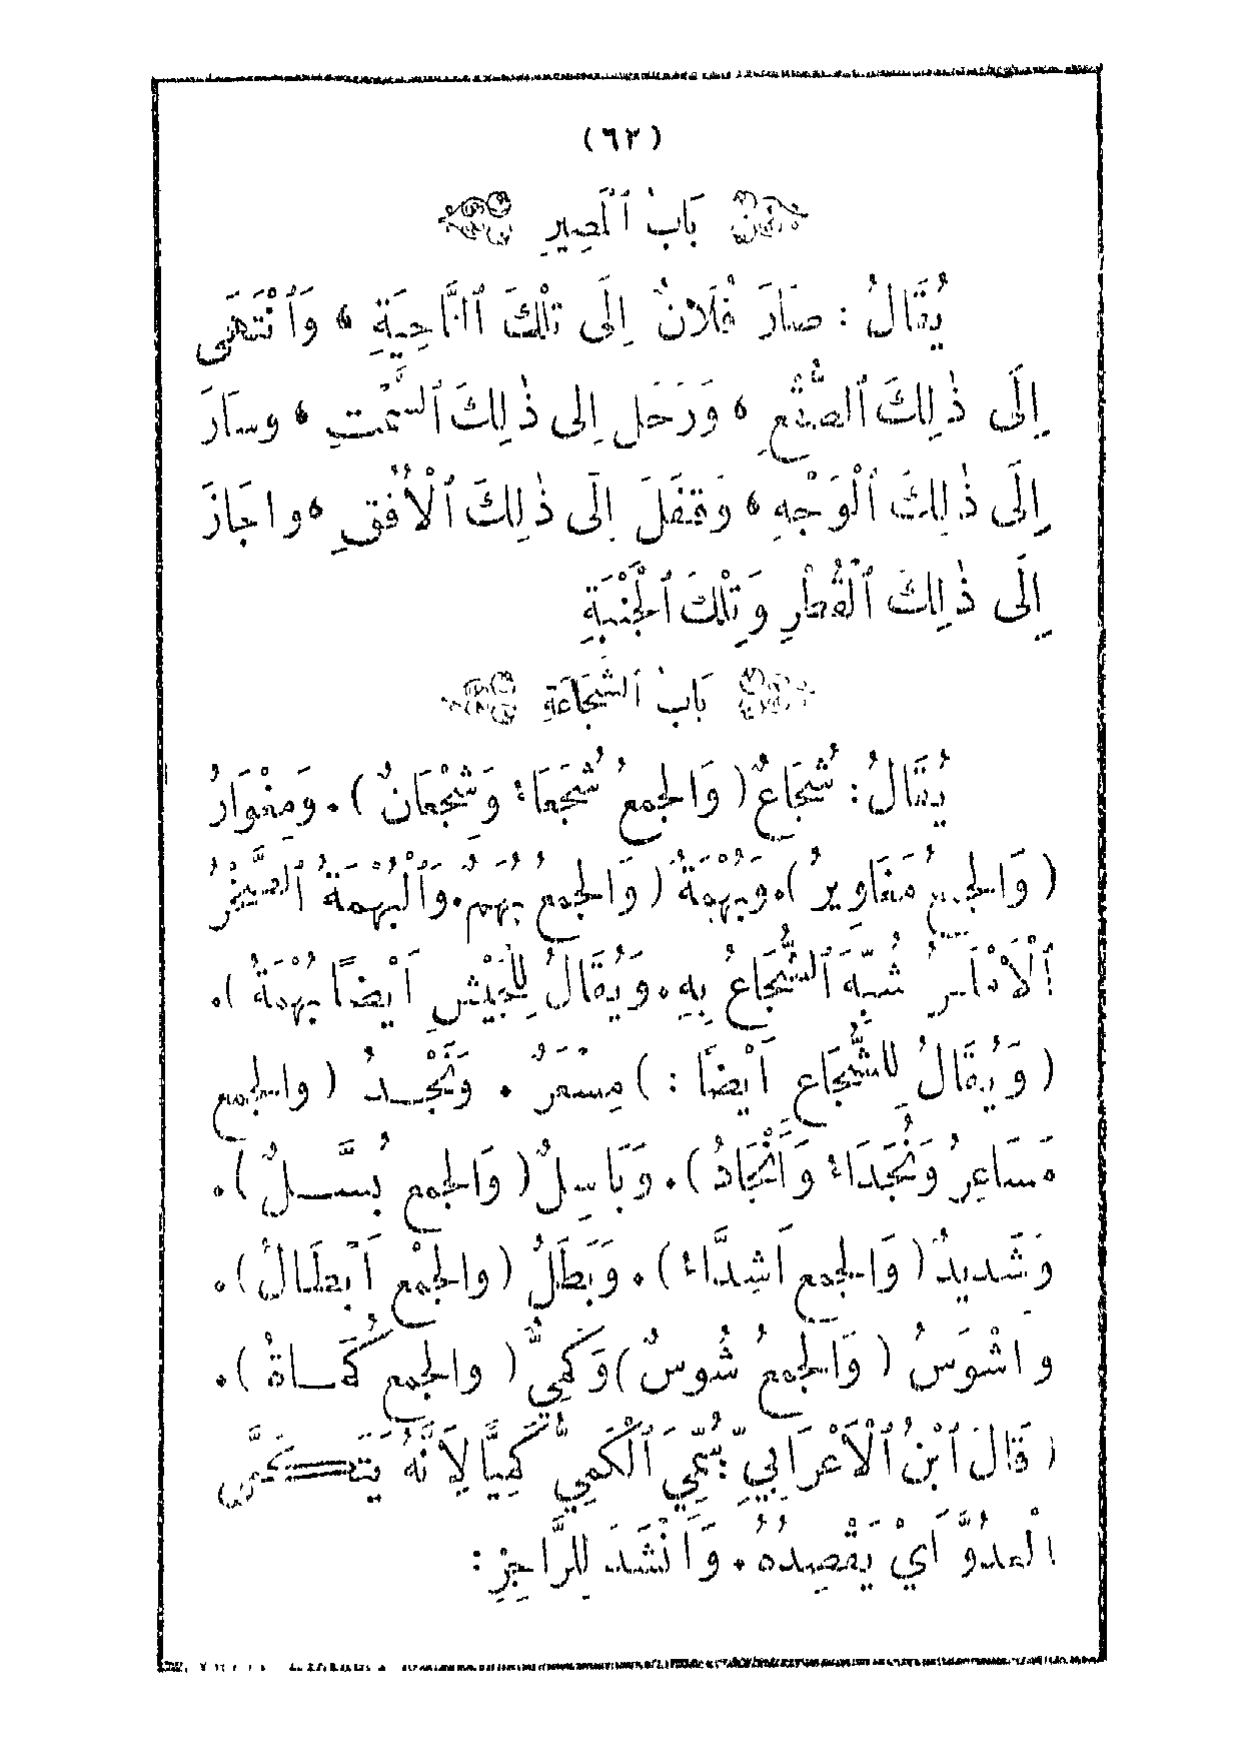 (٦٢)
بَابُ ٱلْمَصِيرِ
يُقَالُ : صَارَ فُلَانٌ إِلَى تِلْكَ ٱلنَّاحِيَةِ ، وَٱنْتَهَى
إِلَى ذٰلِكَ ٱلصُّقْعِ ، وَرَحَلَ إِلى ذٰلِكَ ٱلسَّمْتِ ، وسَارَ
إِلَى ذٰلِكَ ٱلْوَجْهِ ، وَقَفَلَ إِلَى ذٰلِكَ ٱلْأُفُقِ ، واجَازَ
إِلَى ذٰلِكَ ٱلْقُطْرِ وَتِلْكَ ٱلْجَنْبَةِ
بَابُ ٱلشَّجَاعَةِ
يُقَالُ : شُجَاعٌ ( وَالجمعُ شُجَعَاءُ وَشُجْعَانٌ ) . وَمِغْوَارٌ
( وَالجمعُ مَغَاوِيرُ ) . وَبُهْمَةٌ ( وَالجمعُ بُهَمٌ . وَٱلْبُهْمَةُ ٱلصَّخْرُ
ٱلْأَمْلَسُ شُبِّهَ ٱلشُّجَاعُ بِهِ . وَيُقَالُ لِلْجَيْشِ أَيْضًا بُهْمَةٌ ) .
( وَيُقَالُ لِلشُّجَاعِ أَيْضًا : ) مِسْعَرٌ . وَنَجْـدٌ ( والجمع
مَسَاعِرُ وَنُجَدَاءُ وَأَنْجَادٌ ) . وَبَاسِلٌ ( وَالجمع بُسَّـلٌ ) .
وَشَدِيدٌ ( وَالجمع أَشِدَّاءُ ) . وَبَطَلٌ ( والجمْع أَبْطَالٌ ) .
واشْوَسُ ( وَالجمعُ شُوسٌ ) وَكَمِيٌّ ( والجمع كُمَـاةٌ ) .
( قَالَ ٱبْنُ ٱلْأَعْرَابِيِّ : سُمِّيَ ٱلْكَمِيُّ كَمِيًّا لِأَنَّهُ يَتَكَمَّى
الْعدُوَّ أَيْ يَقْصِدُهُ . وَأَنْشَدَ لِلرَّاجِزِ :